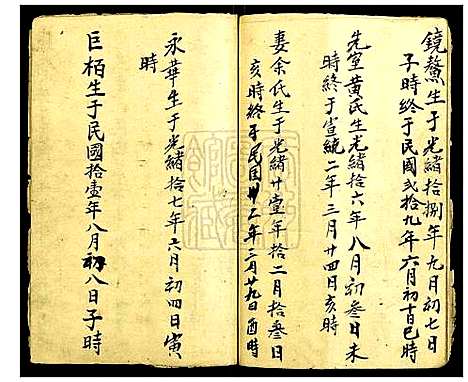 鏡鰲生于光緒拾捌年九月初七日
子時終于民國弍拾九年六月初十日巳時
先室黃氏生光緒拾六年八月初叁日未
時終于宣統二年三月廿四日亥時
妻余氏生于光緒廿壹年拾二月拾叁日
亥時終于民國卅二年三月廿九日酉時
永華生于光緒拾七年六月初四日寅
時
巨栢生于民國拾壹年八月初八日子時